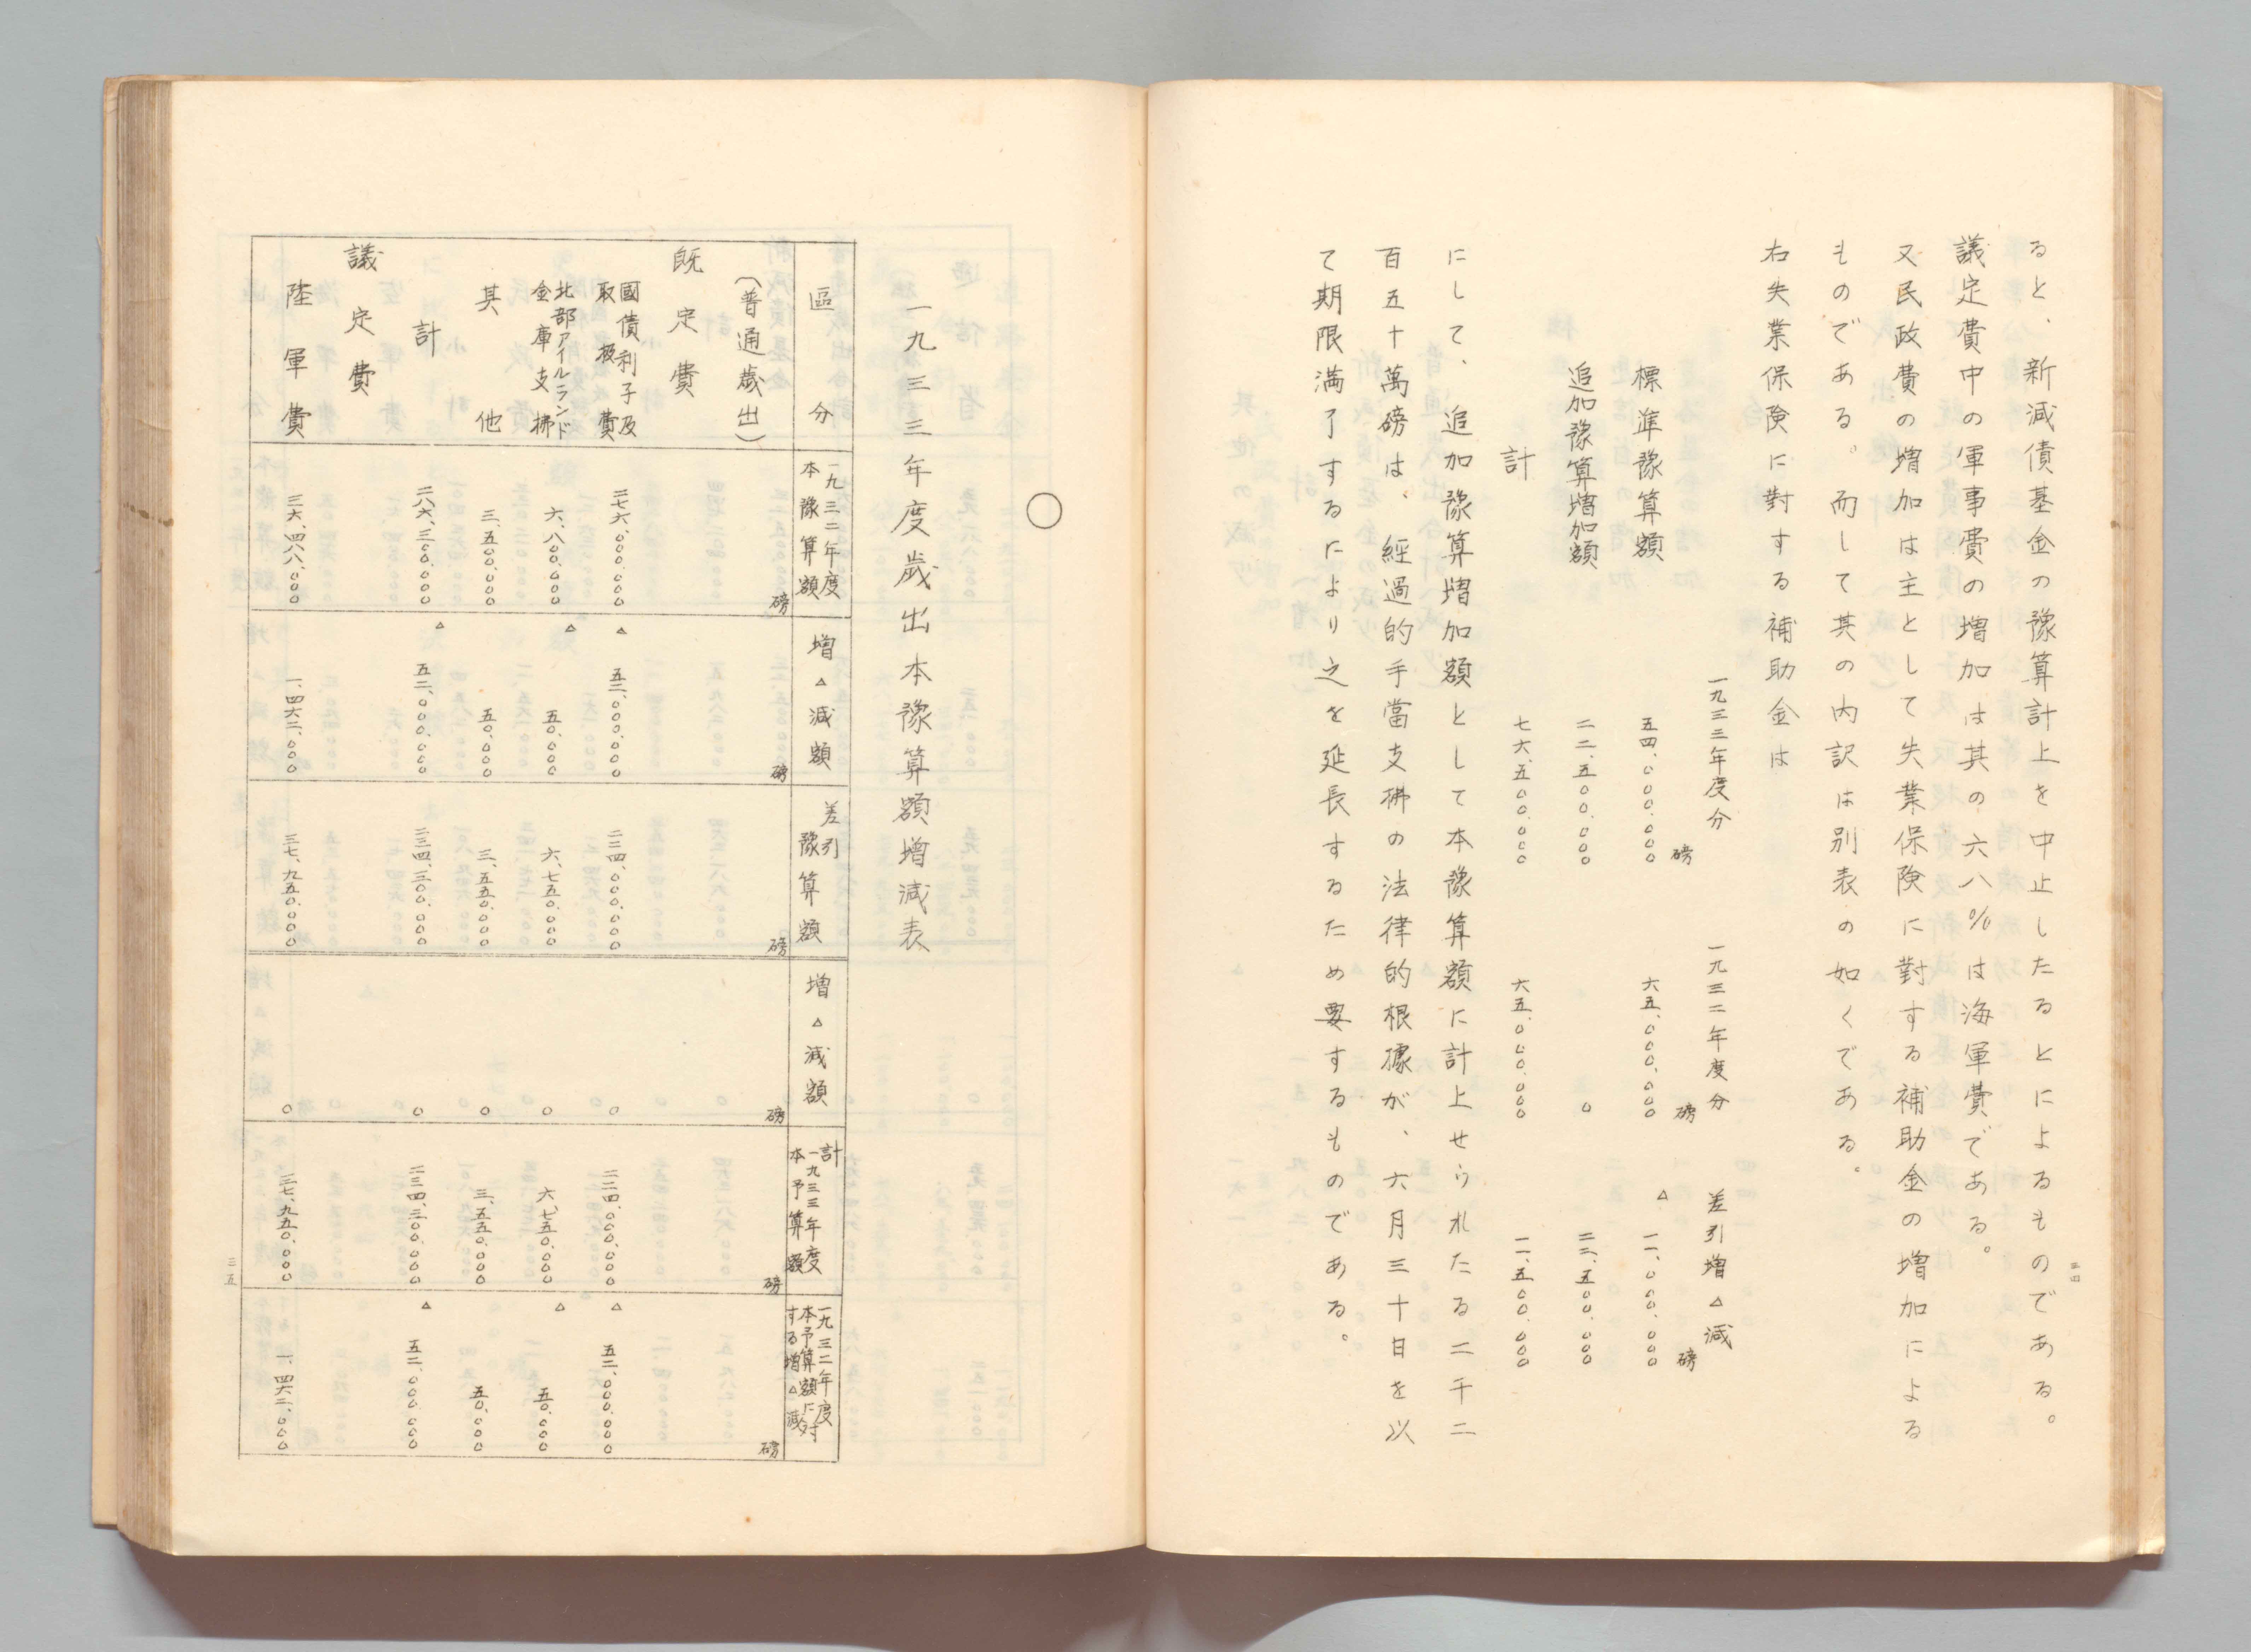 ると、新減債基金の豫算計上を中止したるとによるものである。
議定費中の軍事費の増加は其の六八%は海軍費である。
又民政費の増加は主として失業保険に對する補助金の増加による
ものである。而して其の内訳は別表の如くである。
右失業保険に對する補助金は
一九三三年度分 一九三二年度分 差引増△減
標準豫算額 五四、〇〇〇、〇〇〇磅 六五、〇〇〇、〇〇〇磅 △ 一一、〇〇〇、〇〇〇磅
追加豫算増加額 二二、五〇〇、〇〇〇 〇 二二、五〇〇、〇〇〇
計 七六、五〇〇、〇〇〇 六五、〇〇〇、〇〇〇 一一、五〇〇、〇〇〇
にして、追加豫算増加額として本豫算額に計上せられたる二千二
百五十萬磅は、經過的手當支拂の法律的根據が、六月三十日を以
て期限満了するにより之を延長するため要するものである。
三四
〇
一九三三年度歳出本豫算額増減表
區分 一九三二年度本豫算額 増△減額 差引豫算額 増△減額 計一九三三年度本予算額 一九三二年度本予算額に対する増△減
(普通歳出) 磅 磅 磅 磅 磅 磅
既定費
國債利子及取扱費 二七六、〇〇〇、〇〇〇 △ 五二、〇〇〇、〇〇〇 二二四、〇〇〇、〇〇〇 〇 二二四、〇〇〇、〇〇〇 △ 五二、〇〇〇、〇〇〇
北部アイルランド金庫支拂 六、八〇〇、〇〇〇 △ 五〇、〇〇〇 六、七五〇、〇〇〇 〇 六、七五〇、〇〇〇 △ 五〇、〇〇〇
其他 三、五〇〇、〇〇〇 五〇、〇〇〇 三、五五〇、〇〇〇 〇 三、五五〇、〇〇〇 五〇、〇〇〇
計 二八六、三〇〇、〇〇〇 △ 五二、〇〇〇、〇〇〇 二三四、三〇〇、〇〇〇 〇 二三四、三〇〇、〇〇〇 △ 五二、〇〇〇、〇〇〇
議定費
陸軍費 三六、四八八、〇〇〇 一、四六二、〇〇〇 三七、九五〇、〇〇〇 〇 三七、九五〇、〇〇〇 一、四六二、〇〇〇
三五